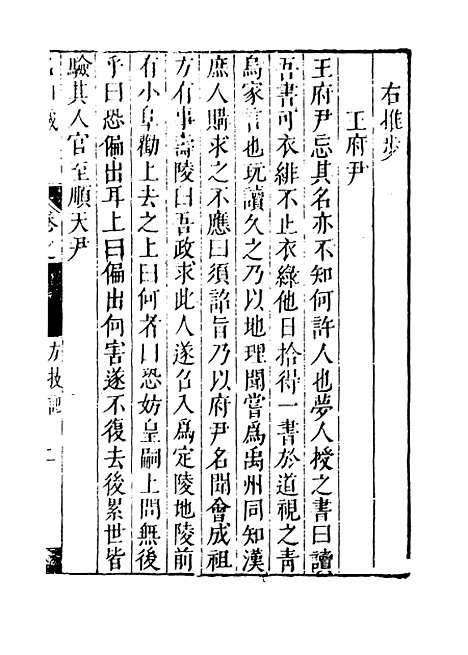 右推步
王府尹
王府尹忘其名亦不知何許人也夢人授之書曰讀
吾書可衣緋不止衣綠他日拾得一書於道視之青
烏家言也玩讀久之乃以地理聞嘗爲禹州同知漢
庶人購求之不應曰須詔旨乃以府尹名聞會成祖
方有事壽陵曰吾政求此人遂召入爲定陵地陵前
有小阜勸上去之上曰何者曰恐妨皇嗣上問無後
乎曰恐偏出耳上曰偏出何害遂不復去後累世皆
驗其人官至順天尹
方技記 二